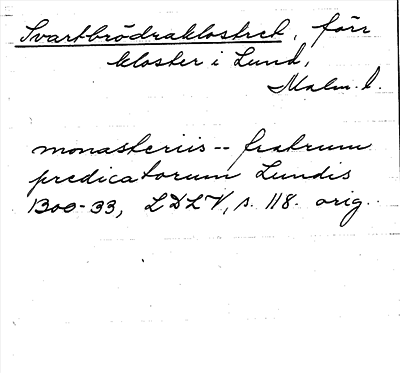 Svartbrödraklostret, förr
kloster i Lund,
Malm. l.
monasteriis -- fratrum
predicatorum Lundis
1300-33, LDLV, s. 118. orig.